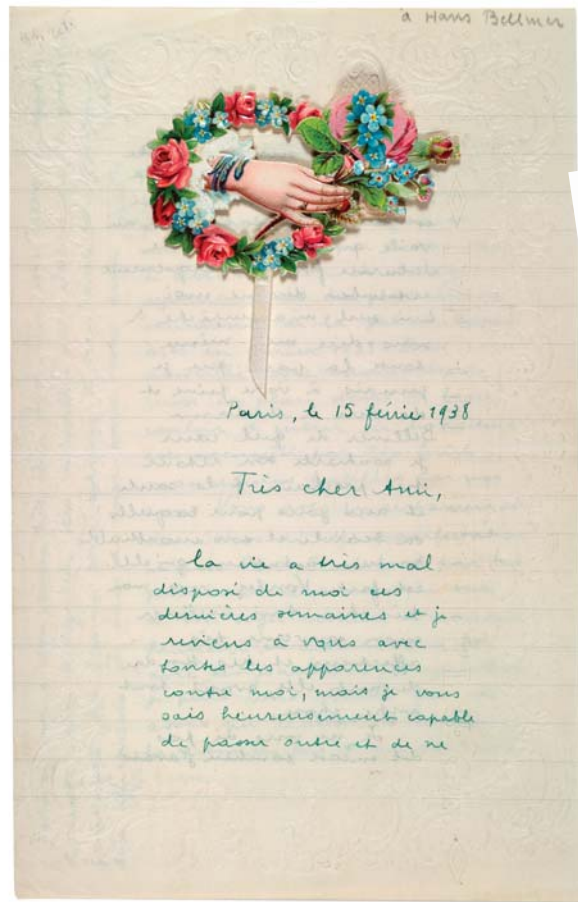 à Hans Bellmer
Paris, le 15 février 1938
Très cher Ami,
la vie a très mal
disposé de moi ces
dernières semaines et je
reviens à vous avec
toutes les apparences
contre moi, mais je vous
sais heureusement capable
de passer outre et de ne